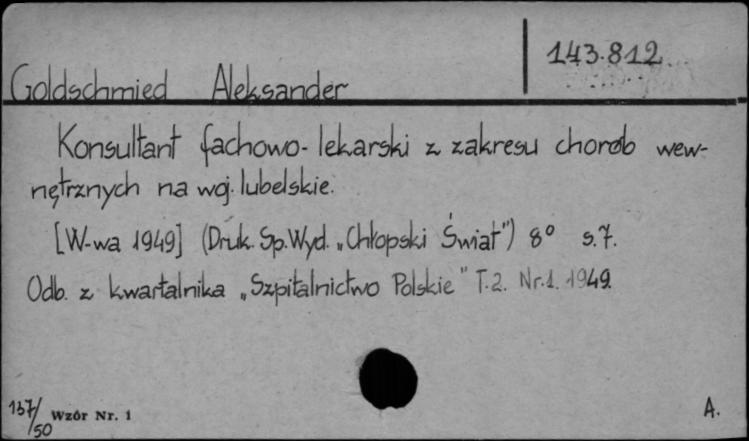 143.812
Goldschmied Aleksander
Konsultant fachowo-lekarski z zakresu chorób wew-
nętrznych na woj. lubelskie.
[W-wa 1949] (Druk. Sp. Wyd. „Chłopski Świat") 8° s. 7.
Odb. z kwartalnika „Szpitalnictwo Polskie" T. 2. Nr. 1. 1949.
137/50 Wzór Nr. 1
A.